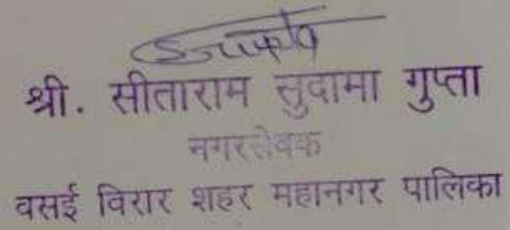 श्री. सीताराम सुदामा गुप्ता
नगरसेवक
वसई विरार शहर महानगर पालिका